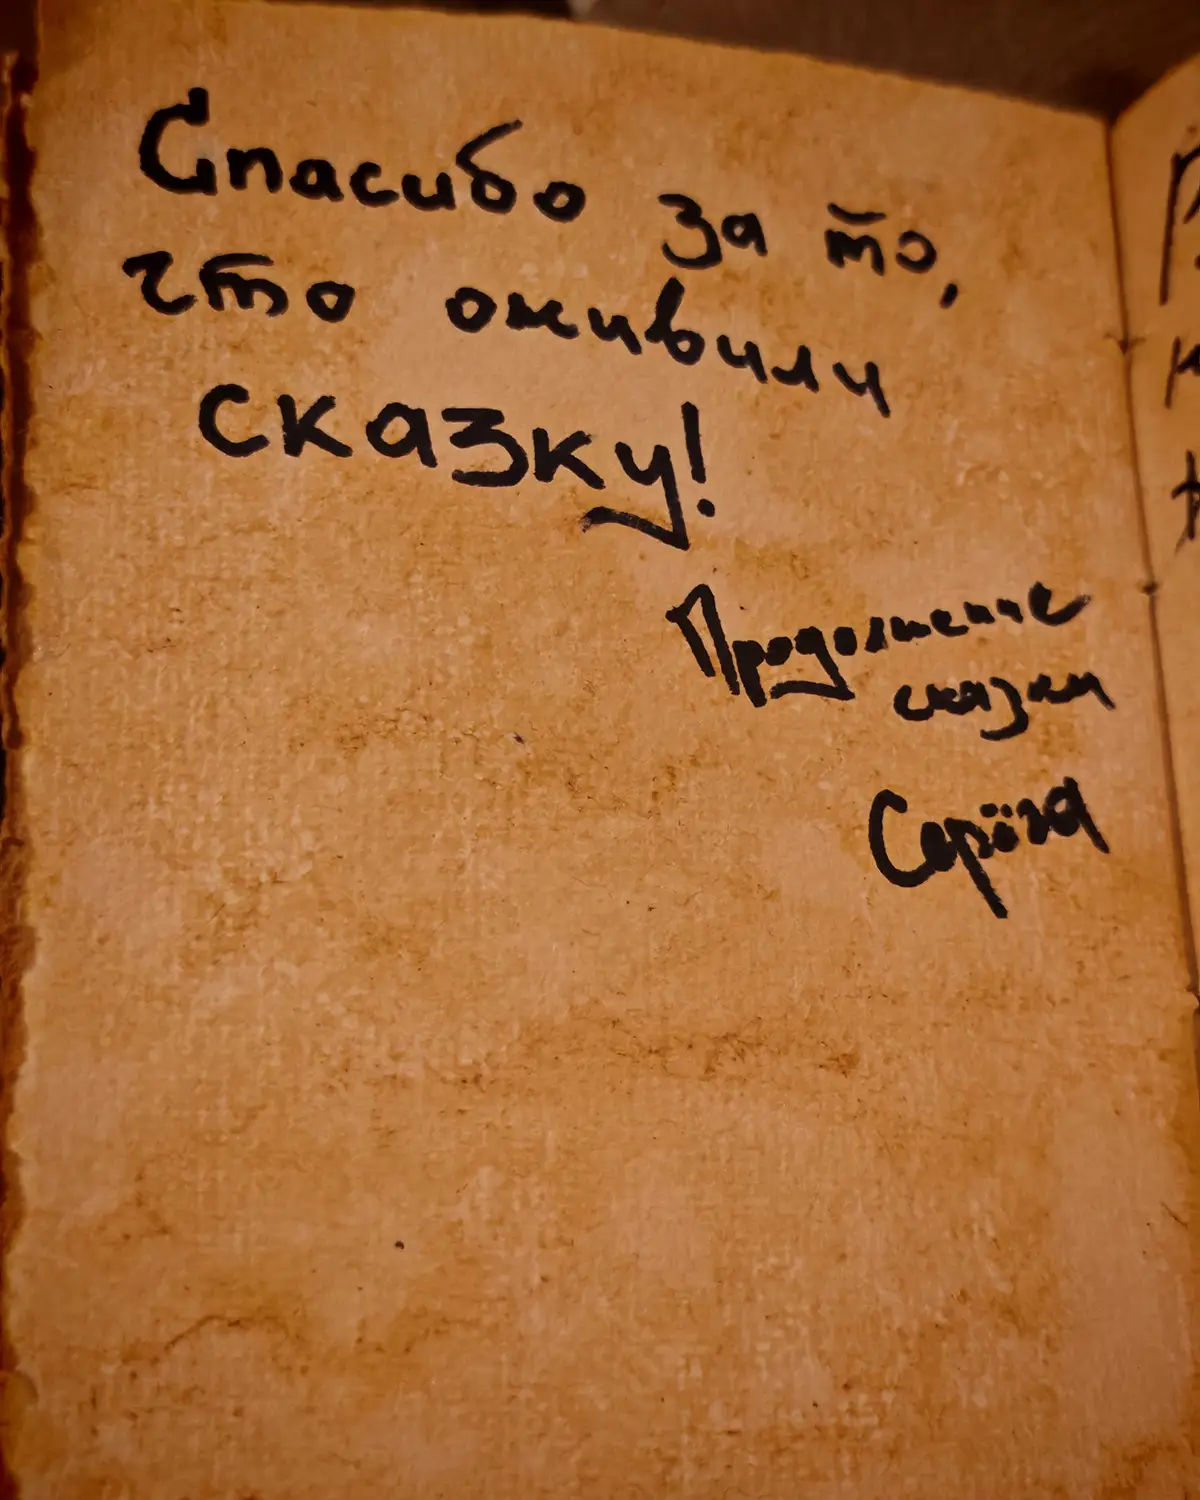 Спасибо за то,
что оживили
сказку!
Продолжение
сказки
Серёга